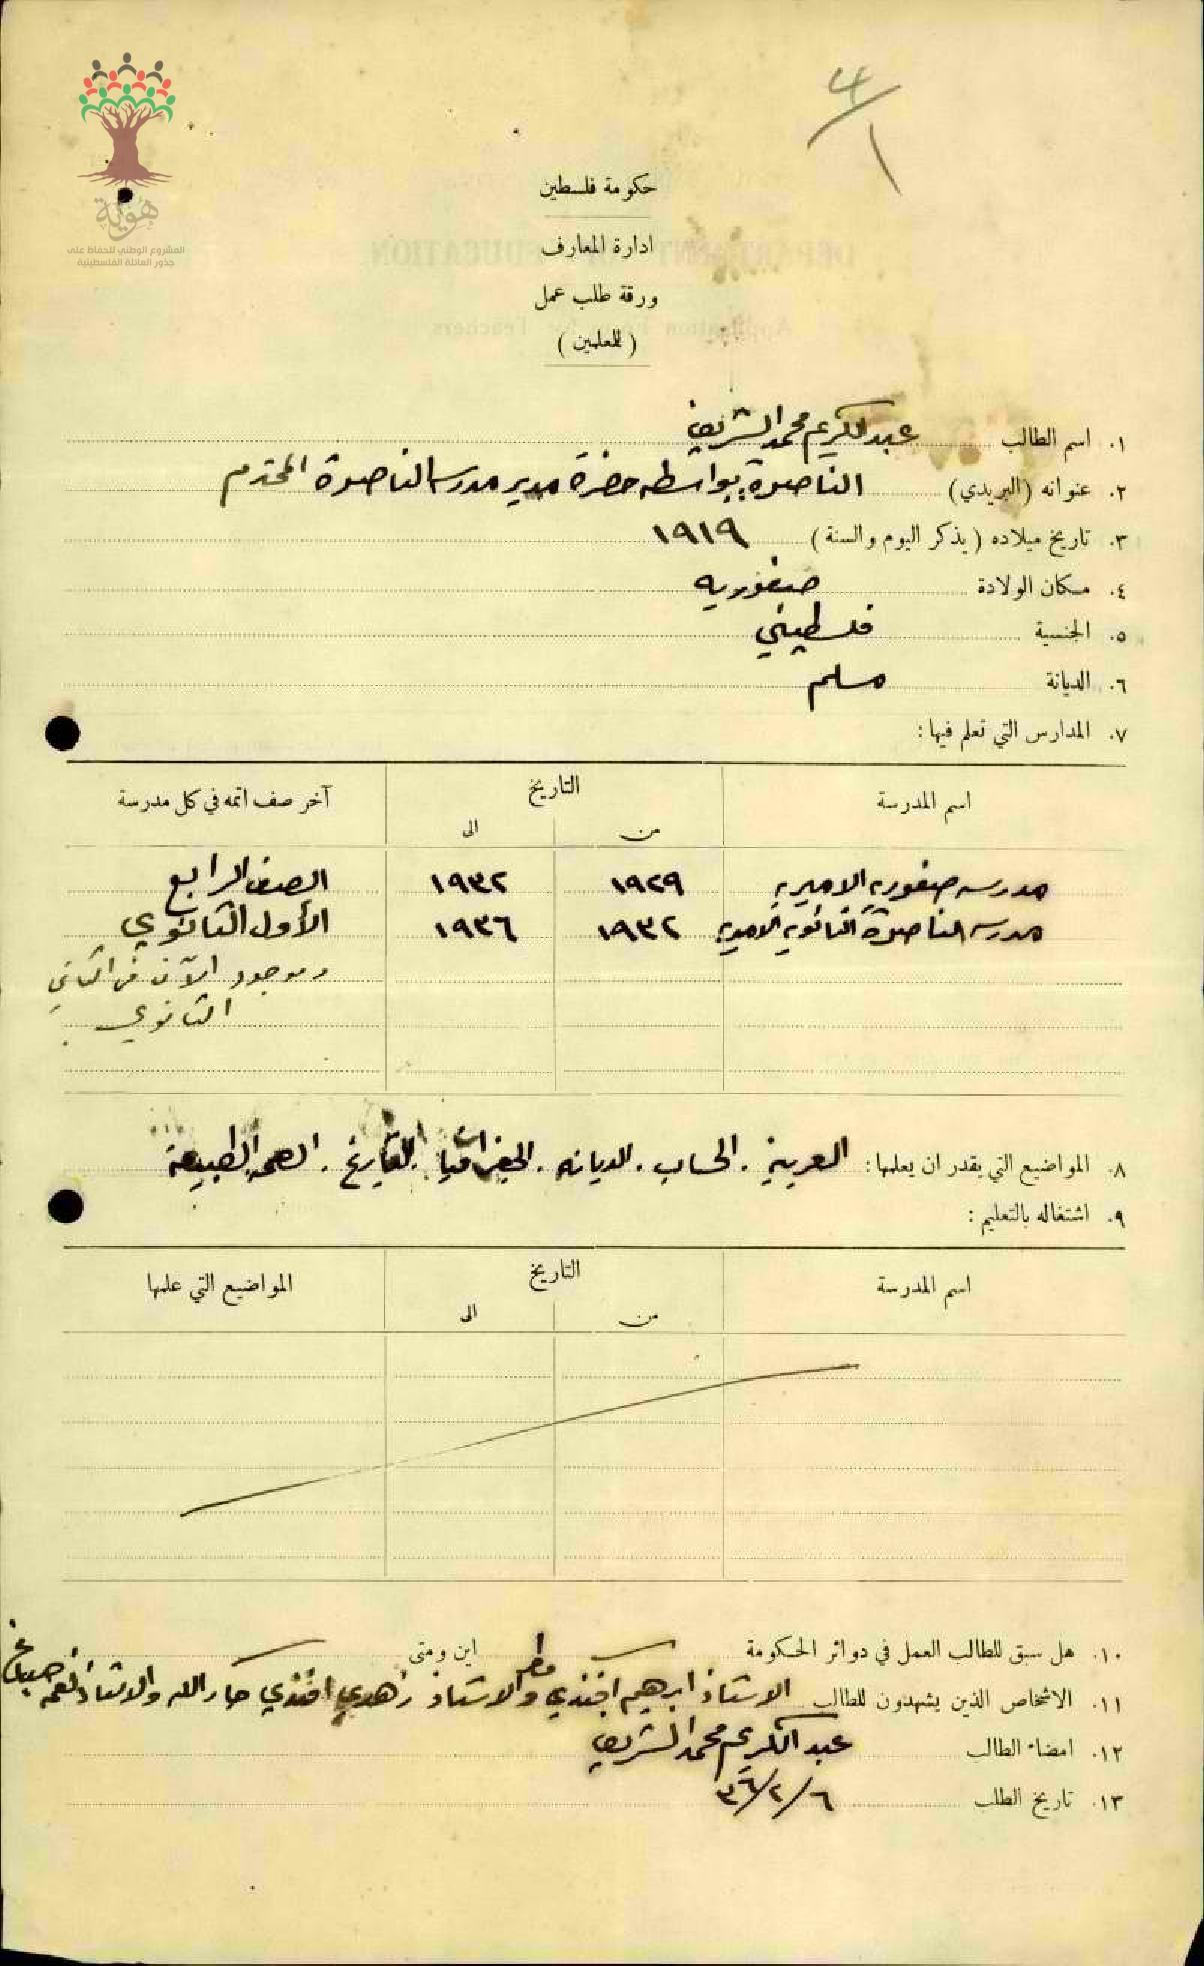 ٤/١
هوية
المشروع الوطني للحفاظ على
جذور العائلة الفلسطينية
حكومة فلسطين
ادارة المعارف
ورقة طلب عمل
(للمعلمين)
١. اسم الطالب عبد الكريم محمد الشريف
٢. عنوانه (البريدي) الناصرة بواسطة حضرة مدير مدرسة الناصرة المحترم
٣. تاريخ ميلاده (يذكر اليوم والسنة) ١٩١٩
٤. مكان الولادة صفوريه
٥. الجنسية فلسطيني
٦. الديانة مسلم
٧. المدارس التي تعلم فيها:
اسم المدرسة التاريخ آخر صف اتمه في كل مدرسة
من الى
مدرسة صفورية الاميرية ١٩٢٩ ١٩٣٢ الصف الرابع
مدرسة الناصرة الثانوية الاميرية ١٩٣٢ ١٩٣٦ الأول الثانوي
وموجود الآن في الثاني
الثانوي
٨. المواضيع التي يقدر ان يعلمها: العربية. الحساب. الديانه. الجغرافيا. التاريخ. الصحة الطبيعة
٩. اشتغاله بالتعليم:
اسم المدرسة التاريخ المواضيع التي علمها
من الى
١٠. هل سبق للطالب العمل في دوائر الحكومة اين ومتى
١١. الاشخاص الذين يشهدون للطالب الاستاذ ابرهيم افندي مطر والاستاذ زهدي افندي جار الله والاستاذ نعمه صباغ
١٢. امضاء الطالب عبد الكريم محمد الشريف
١٣. تاريخ الطلب ٦/٢/٣٦